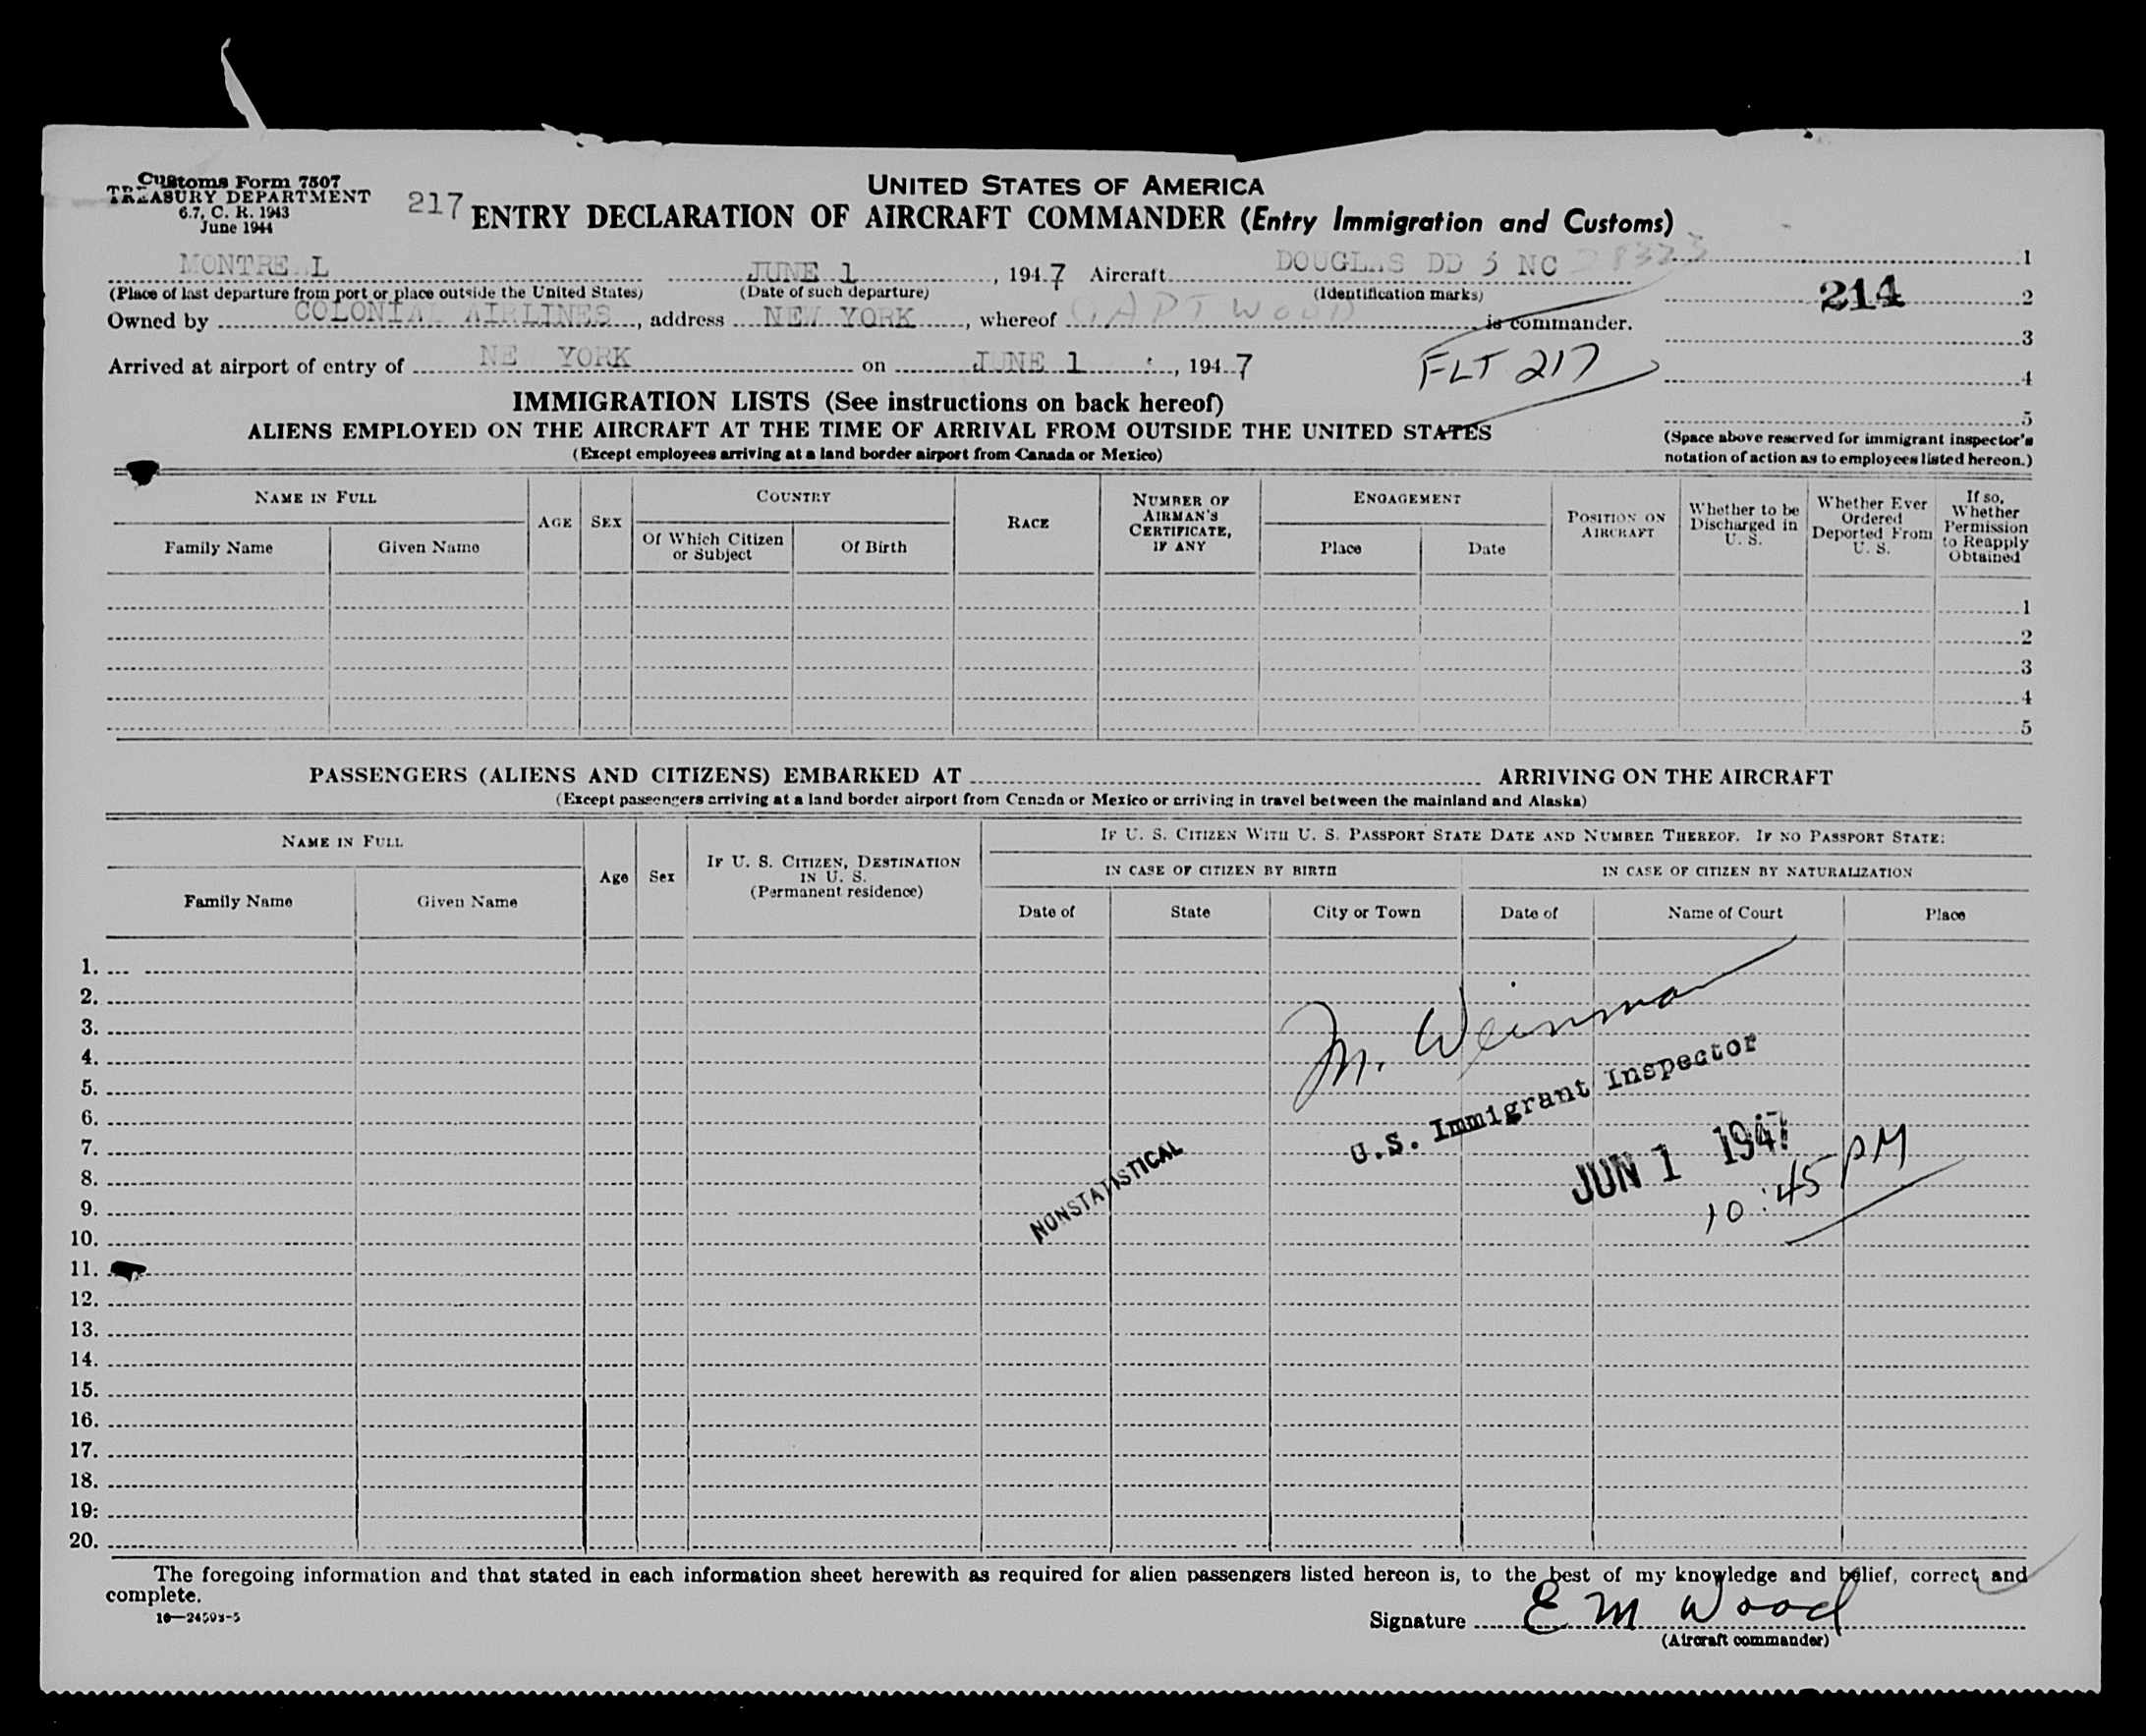 Customs Form 7507
TREASURY DEPARTMENT
6.7, C. R. 1943
June 1944
217
UNITED STATES OF AMERICA
ENTRY DECLARATION OF AIRCRAFT COMMANDER (Entry Immigration and Customs)
MONTRE L JUNE 1, 1947 Aircraft DOUGLAS DD 3 NC 28323 1
(Place of last departure from port or place outside the United States) (Date of such departure) (Identification marks) 214 2
Owned by COLONIAL AIRLINES, address NEW YORK, whereof CAPT WOOD is commander.
3
Arrived at airport of entry of NE YORK on JUNE 1, 1947 FLT 217
4
IMMIGRATION LISTS (See instructions on back hereof)
5
ALIENS EMPLOYED ON THE AIRCRAFT AT THE TIME OF ARRIVAL FROM OUTSIDE THE UNITED STATES
(Except employees arriving at a land border airport from Canada or Mexico)
(Space above reserved for immigrant inspector's
notation of action as to employees listed hereon.)
NAME IN FULL
Family Name Given Name
AGE
SEX
COUNTRY
Of Which Citizen or Subject Of Birth
RACE
NUMBER OF AIRMAN'S CERTIFICATE, IF ANY
ENGAGEMENT
Place Date
POSITION ON AIRCRAFT
Whether to be Discharged in U. S.
Whether Ever Ordered Deported From U. S.
If so, Whether Permission to Reapply Obtained
1
2
3
4
5
PASSENGERS (ALIENS AND CITIZENS) EMBARKED AT ARRIVING ON THE AIRCRAFT
(Except passengers arriving at a land border airport from Canada or Mexico or arriving in travel between the mainland and Alaska)
NAME IN FULL
Family Name Given Name
Age
Sex
IF U. S. CITIZEN, DESTINATION IN U. S.
(Permanent residence)
IF U. S. CITIZEN WITH U. S. PASSPORT STATE DATE AND NUMBER THEREOF. IF NO PASSPORT STATE:
IN CASE OF CITIZEN BY BIRTH IN CASE OF CITIZEN BY NATURALIZATION
Date of State City or Town Date of Name of Court Place
1.
2.
3.
4.
5.
6.
7.
8.
9.
10.
11.
12.
13.
14.
15.
16.
17.
18.
19.
20.
M. Weinman
U.S. Immigrant Inspector
NONSTATISTICAL
JUN 1 1947
10:45 PM
The foregoing information and that stated in each information sheet herewith as required for alien passengers listed hereon is, to the best of my knowledge and belief, correct and
complete.
16—24593-5
Signature E M Wood
(Aircraft commander)